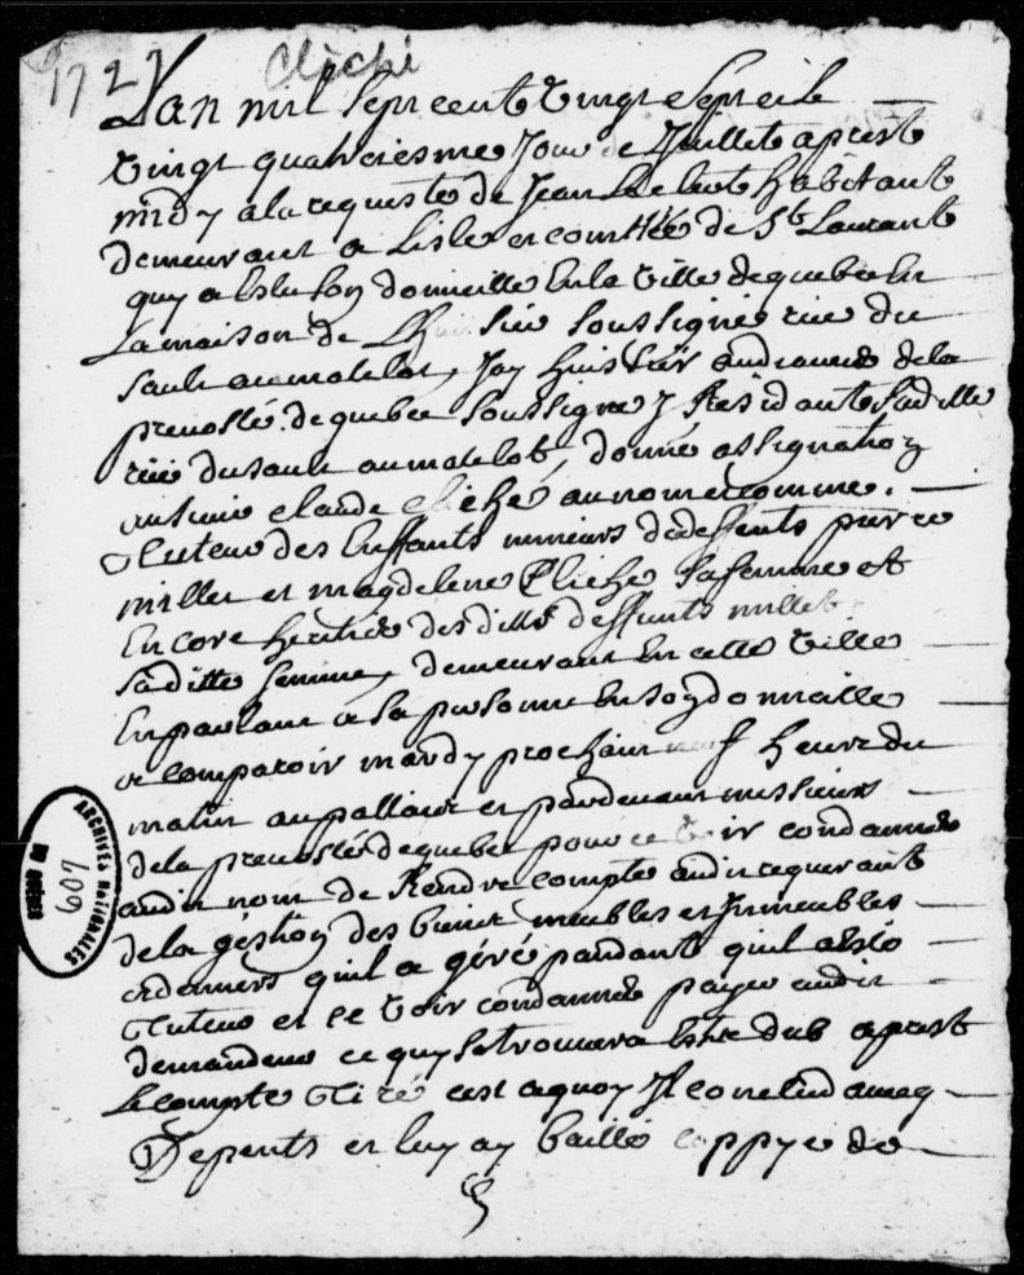 1727 Cliché
Lan mil Sept cents Vingt Sept et le
Vingt quatriesme Jour de Juillet aprest
midy a la requeste de Jean habitant
demeurant a Lisle et comttée de St Laurant
quy a Eslu son domicille En la Ville de quebec En
La maison de Lhuissier soussigné rüe du
Sault au matelot, Jay huissier audiancié de la
prevosté de quebec soussigné Residant Sud. ville
rüe du sault au matelot, donné assignation
au sieur claude cliché au nom et comme
Tuteur des Enffants mineurs de deffents pierre
millet et magdelene Cliche sa femme et
Encore heritié des ditts deffunts millet
Sa ditte femme, demeurant En cette Ville
En parlant a sa personne En son domicille
a comparoir mardy prochain neuf heure du
matin au pallais et pardevant messieurs
de la prevosté de quebec pour ce Voir condamné
audit nom de Rendre compte audit requerant
de la gestion des biens meubles et Jmmeubles
et deniers quil a géré pandant quil a esté
Tuteur et ce Voir condamné payer audit
demandeur ce quy se trouvera Estre dub aprest
Le compte Tiré cest a quoy Jl conclud avecq
Depents et luy ay baillé coppye de
ARCHIVES NATIONALES
DU QUÉBEC
607